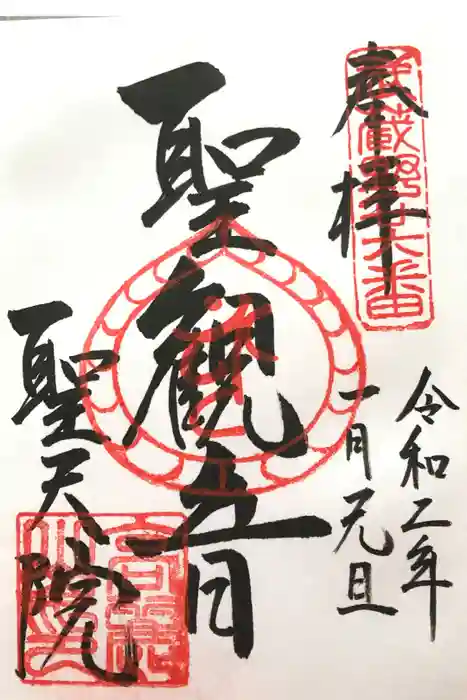 奉拝
武蔵野廿六番
令和二年
一月元旦
聖観音
聖天院